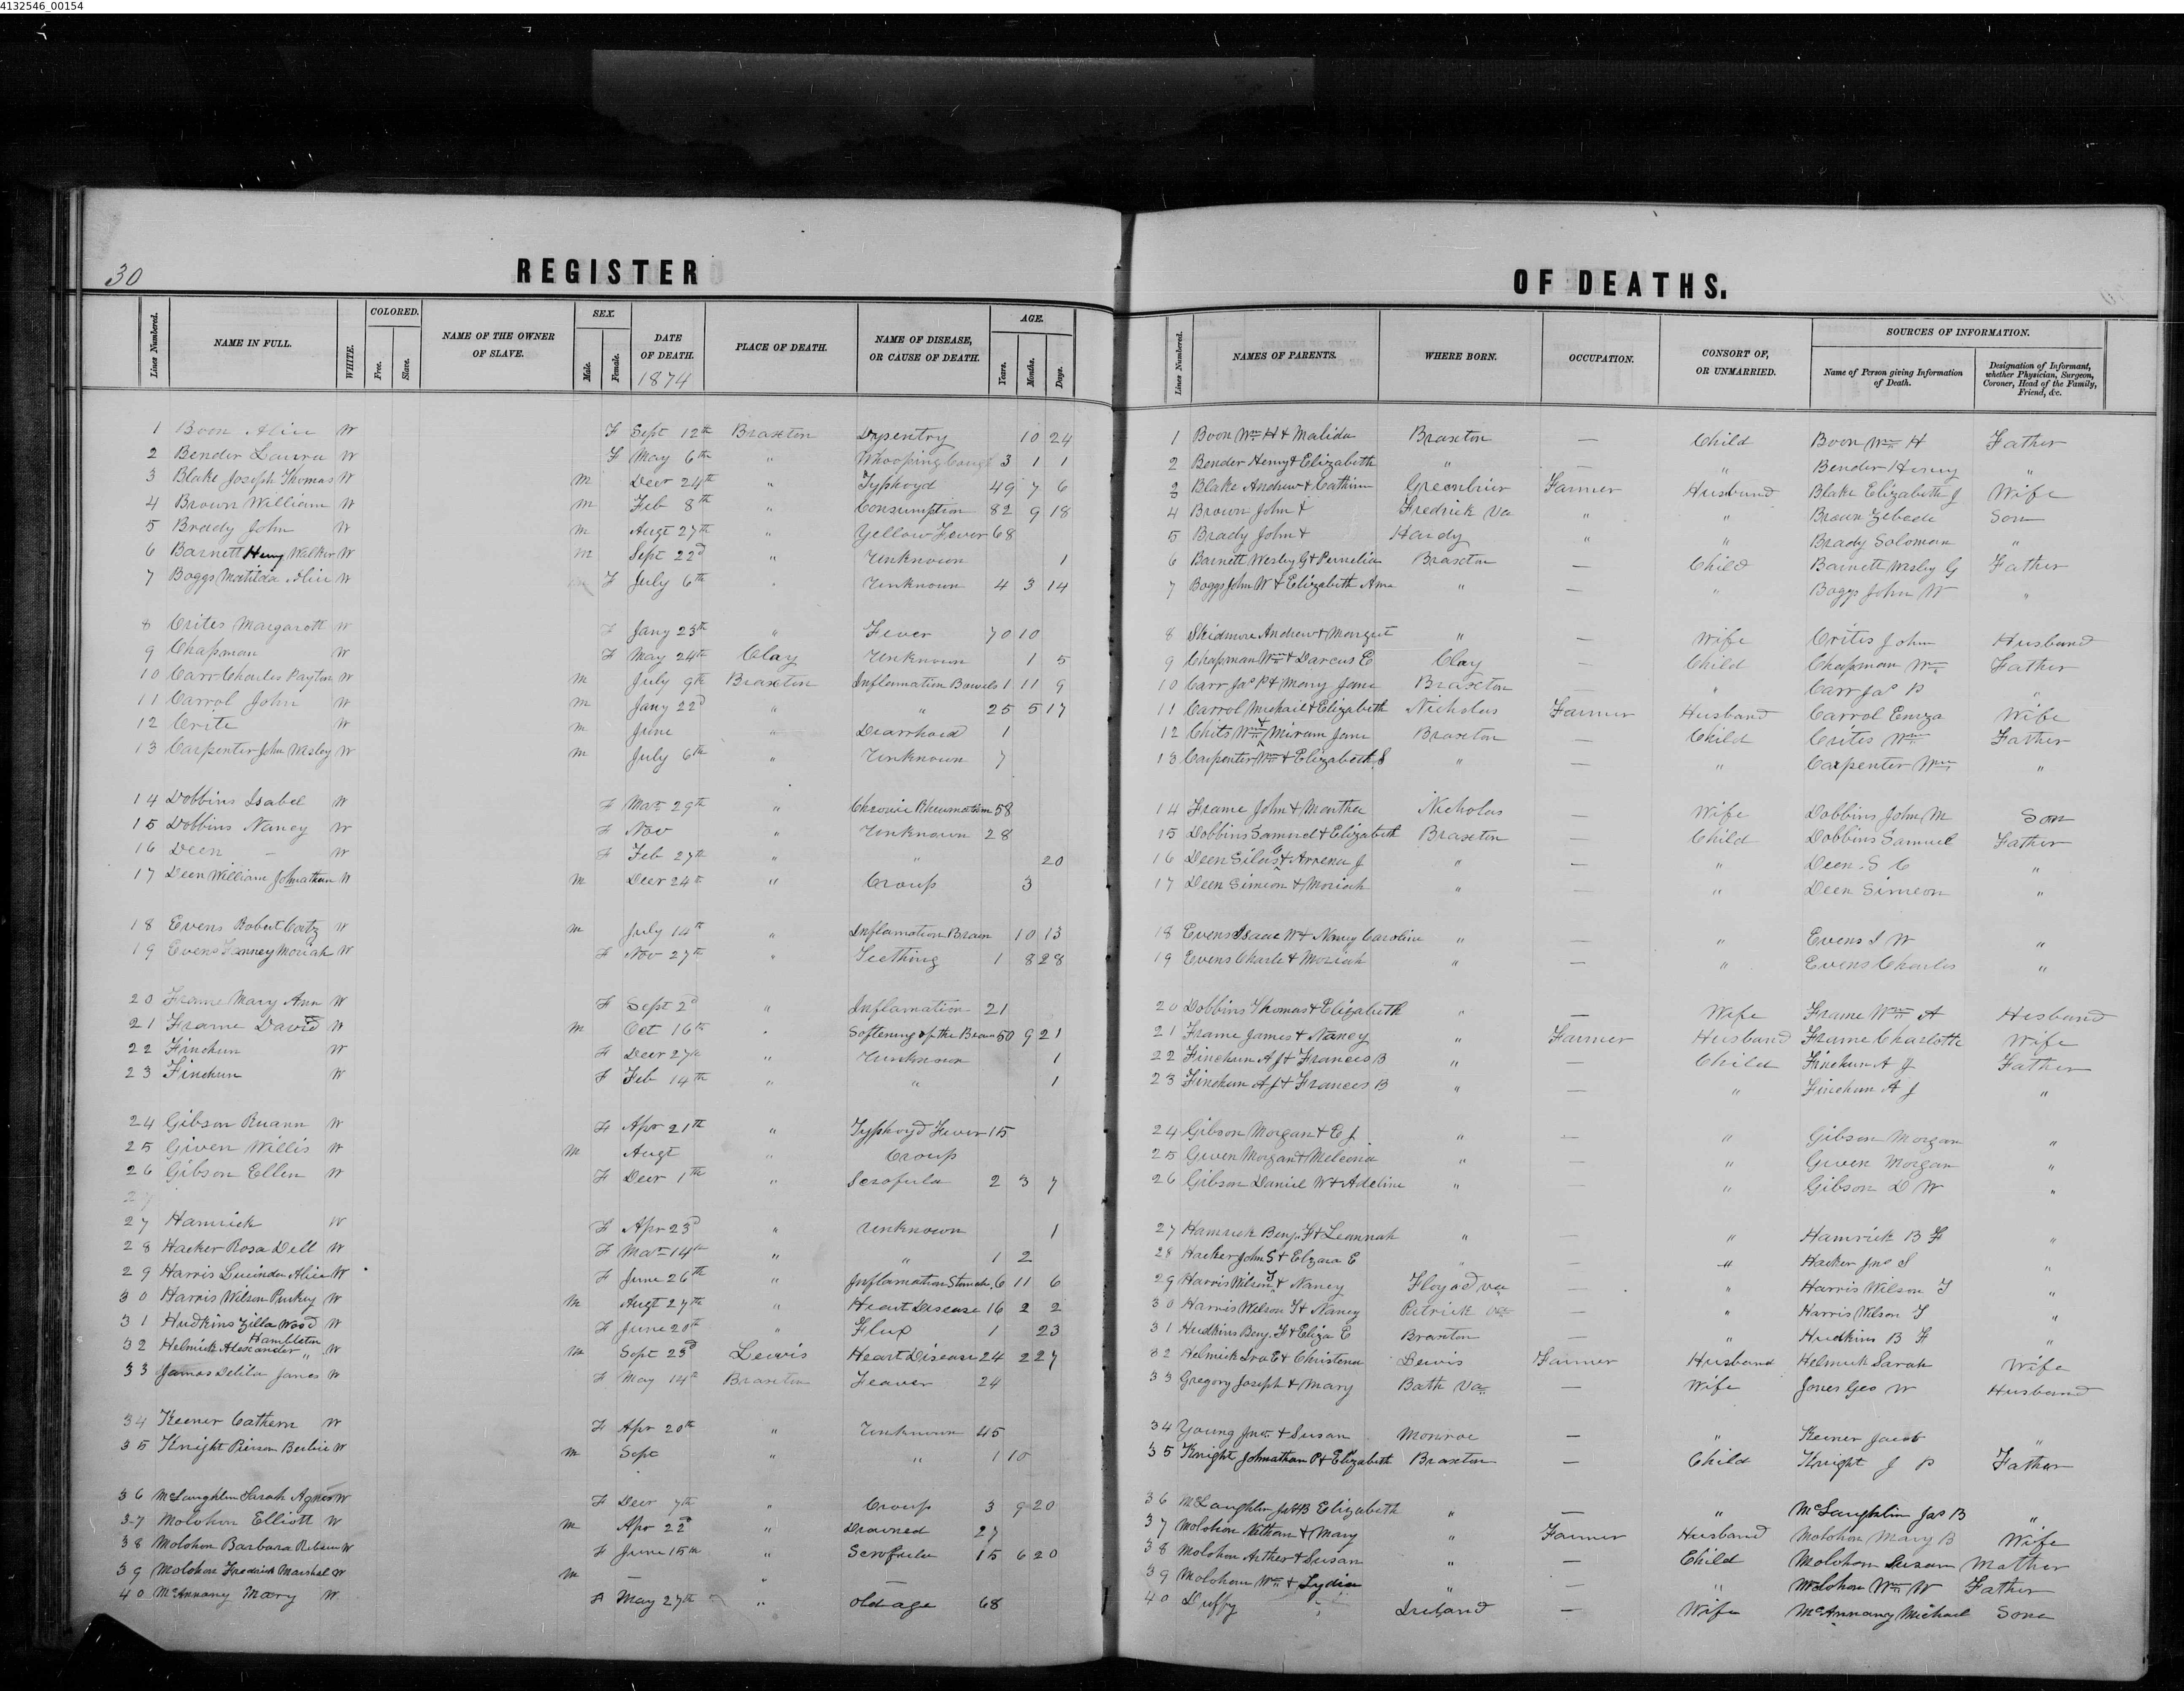 4132546_00154
30
REGISTER OF DEATHS.
Lines Numbered. NAME IN FULL. WHITE. COLORED. Free. Slave. NAME OF THE OWNER OF SLAVE. SEX. Male. Female. DATE OF DEATH. 1874 PLACE OF DEATH. NAME OF DISEASE, OR CAUSE OF DEATH. AGE. Years. Months. Days.
Lines Numbered. NAMES OF PARENTS. WHERE BORN. OCCUPATION. CONSORT OF, OR UNMARRIED. SOURCES OF INFORMATION. Name of Person giving Information of Death. Designation of Informant, whether Physician, Surgeon, Coroner, Head of the Family, Friend, &c.
1 Boon Alice W F Sept 12th Braxton Dysentry 10 24 1 Boon Wm H & Malida Braxton — Child Boon Wm H Father
2 Bender Laura W F May 6th " Whooping Cough 3 1 1 2 Bender Henry & Elizabeth " — " Bender Henry "
3 Blake Joseph Thomas W M Decr 24th " Typhoyd 49 7 6 3 Blake Andrew & Cathrin Greenbrier Farmer Husband Blake Elizabeth J Wife
4 Brown William W M Feb 8th " Consumption 82 9 18 4 Brown John & Fredrick Va " " Brown Zebede Son
5 Brady John W M Augt 27th " Yellow Fever 68 5 Brady John & Hardy " " Brady Soloman "
6 Barnett Henry Walker W M Sept 22d " Unknown 1 6 Barnett Wesley G & Permelia Braxton — Child Barnett Wesley G Father
7 Boggs Matilda Alice W F July 6th " Unknown 4 3 14 7 Boggs John W & Elizabeth Ama " — " Boggs John W "
8 Crites Margarott W F Jany 23th " Fever 70 10 8 Skidmore Andrew & Margret " — Wife Crites John Husband
9 Chapman W F May 24th Clay Unknown 1 5 9 Chapman Wm & Darcus E Clay — Child Chapman Wm Father
10 Carr Charles Payton W M July 9th Braxton Inflamation Bowels 1 11 9 10 Carr Jas P & Mary Jane Braxton — " Carr Jas P "
11 Carrol John W M Jany 22d " " 25 5 17 11 Carrol Michail & Elizabeth Nicholas Farmer Husband Carrol Emza Wife
12 Crite W M June " Dearrhoed 1 12 Chits Wm & Miriam Jane Braxton — Child Crites Wm Father
13 Carpenter John Wesley W M July 6th " Unknown 7 13 Carpenter Wm & Elizabeth S " — " Carpenter Wm "
14 Dobbins Isabel W F Mar 29th " Chronic Rheumatism 58 14 Frame John & Martha Nicholas — Wife Dobbins John M Son
15 Dobbins Nancy W F Nov " Unknown 28 15 Dobbins Samuel & Elizabeth Braxton — Child Dobbins Samuel Father
16 Deen — W F Feb 27th " " 20 16 Deen Silas C & Arrena J " — " Deen S C "
17 Deen William Johnathan W M Decr 24th " Croup 3 17 Deen Simeon & Moriah " — " Deen Simeon "
18 Evens Robert Cortz W M July 14th " Inflamation Brain 10 13 18 Evens Isaac W & Nancy Caroline " — " Evens I W "
19 Evens Fanney Moriah W F Nov 27th " Teething 1 8 28 19 Evens Charle & Moriah " — " Evens Charles "
20 Frame Mary Ann W F Sept 2d " Inflamation 21 20 Dobbins Thomas & Elizabeth " — Wife Frame Wm A Husband
21 Frame David W M Oct 16th " Softening of the Brain 50 9 21 21 Frame James & Nancy " Farmer Husband Frame Charlotte Wife
22 Finchun W F Decr 27th " Unknown 1 22 Finchun A J & Frances B " — Child Finchun A J Father
23 Finchun W F Feb 14th " " 1 23 Finchun A J & Frances B " — " Finchun A J "
24 Gibson Ruann W F Apr 21th " Typhoyd Fever 15 24 Gibson Morgan & E J " — " Gibson Morgan "
25 Given Willis W M Augt " Croup 25 Given Morgan & Meleena " — " Given Morgan "
26 Gibson Ellen W F Decr 1th " Scrofula 2 3 7 26 Gibson Daniel W & Adeline " — " Gibson D W "
27
27 Hamrick W F Apr 23d " Unknown 1 27 Hamrick Benj. F & Leannah " — " Hamrick B F "
28 Hacker Rosa Dell W F Mar 14th " " 1 2 28 Hacker John S & Elzara E " — " Hacker Jno S "
29 Harris Lucinda Alice W F June 26th " Inflamation Stomach 6 11 6 29 Harris Wilson T & Nancy Floyd Va — " Harris Wilson T "
30 Harris Wilson Purkey W M Augt 27th " Heart Disease 16 2 2 30 Harris Wilson T & Nancy Patrick Va — " Harris Wilson T "
31 Hudkins Zilla Wood W F June 20th " Flux 1 23 31 Hudkins Benj. F & Eliza E Braxton — " Hudkins B F "
32 Helmick Alexander Hambleton W M Sept 23d Lewis Heart Disease 24 2 27 32 Helmick Ira E & Christena Lewis Farmer Husband Helmick Sarah Wife
33 James Delila Jones W F May 14th Braxton Feaver 24 33 Gregory Joseph & Mary Bath Va — Wife Jones Geo W Husband
34 Keener Cathern W F Apr 20th " Unknown 45 34 Young Jno & Susan Monroe — " Keener Jacob "
35 Knight Pierson Berlie W M Sept " " 1 10 35 Knight Johnathan P & Elizabeth Braxton — Child Knight J P Father
36 McLaughlin Sarah Agnes W F Decr 7th " Croup 3 9 20 36 McLaughlin Jas B Elizabeth " — " McLaughlin Jas B "
37 Molohon Elliott W M Apr 22d " Drowned 27 37 Molohon Nathan & Mary " Farmer Husband Molohon Mary B Wife
38 Molohon Barbara W F June 15th " Scrofula 15 6 20 38 Molohon Arther & Susan " — Child Molohon Susan Mother
39 Molohon Fredrick Marshal W M — " — 39 Molohon Wm & Lydia " — " Molohon Wm W Father
40 McAnnany Mary W F May 27th " old age 68 40 Duffy Ireland — Wife McAnnany Michael Sone